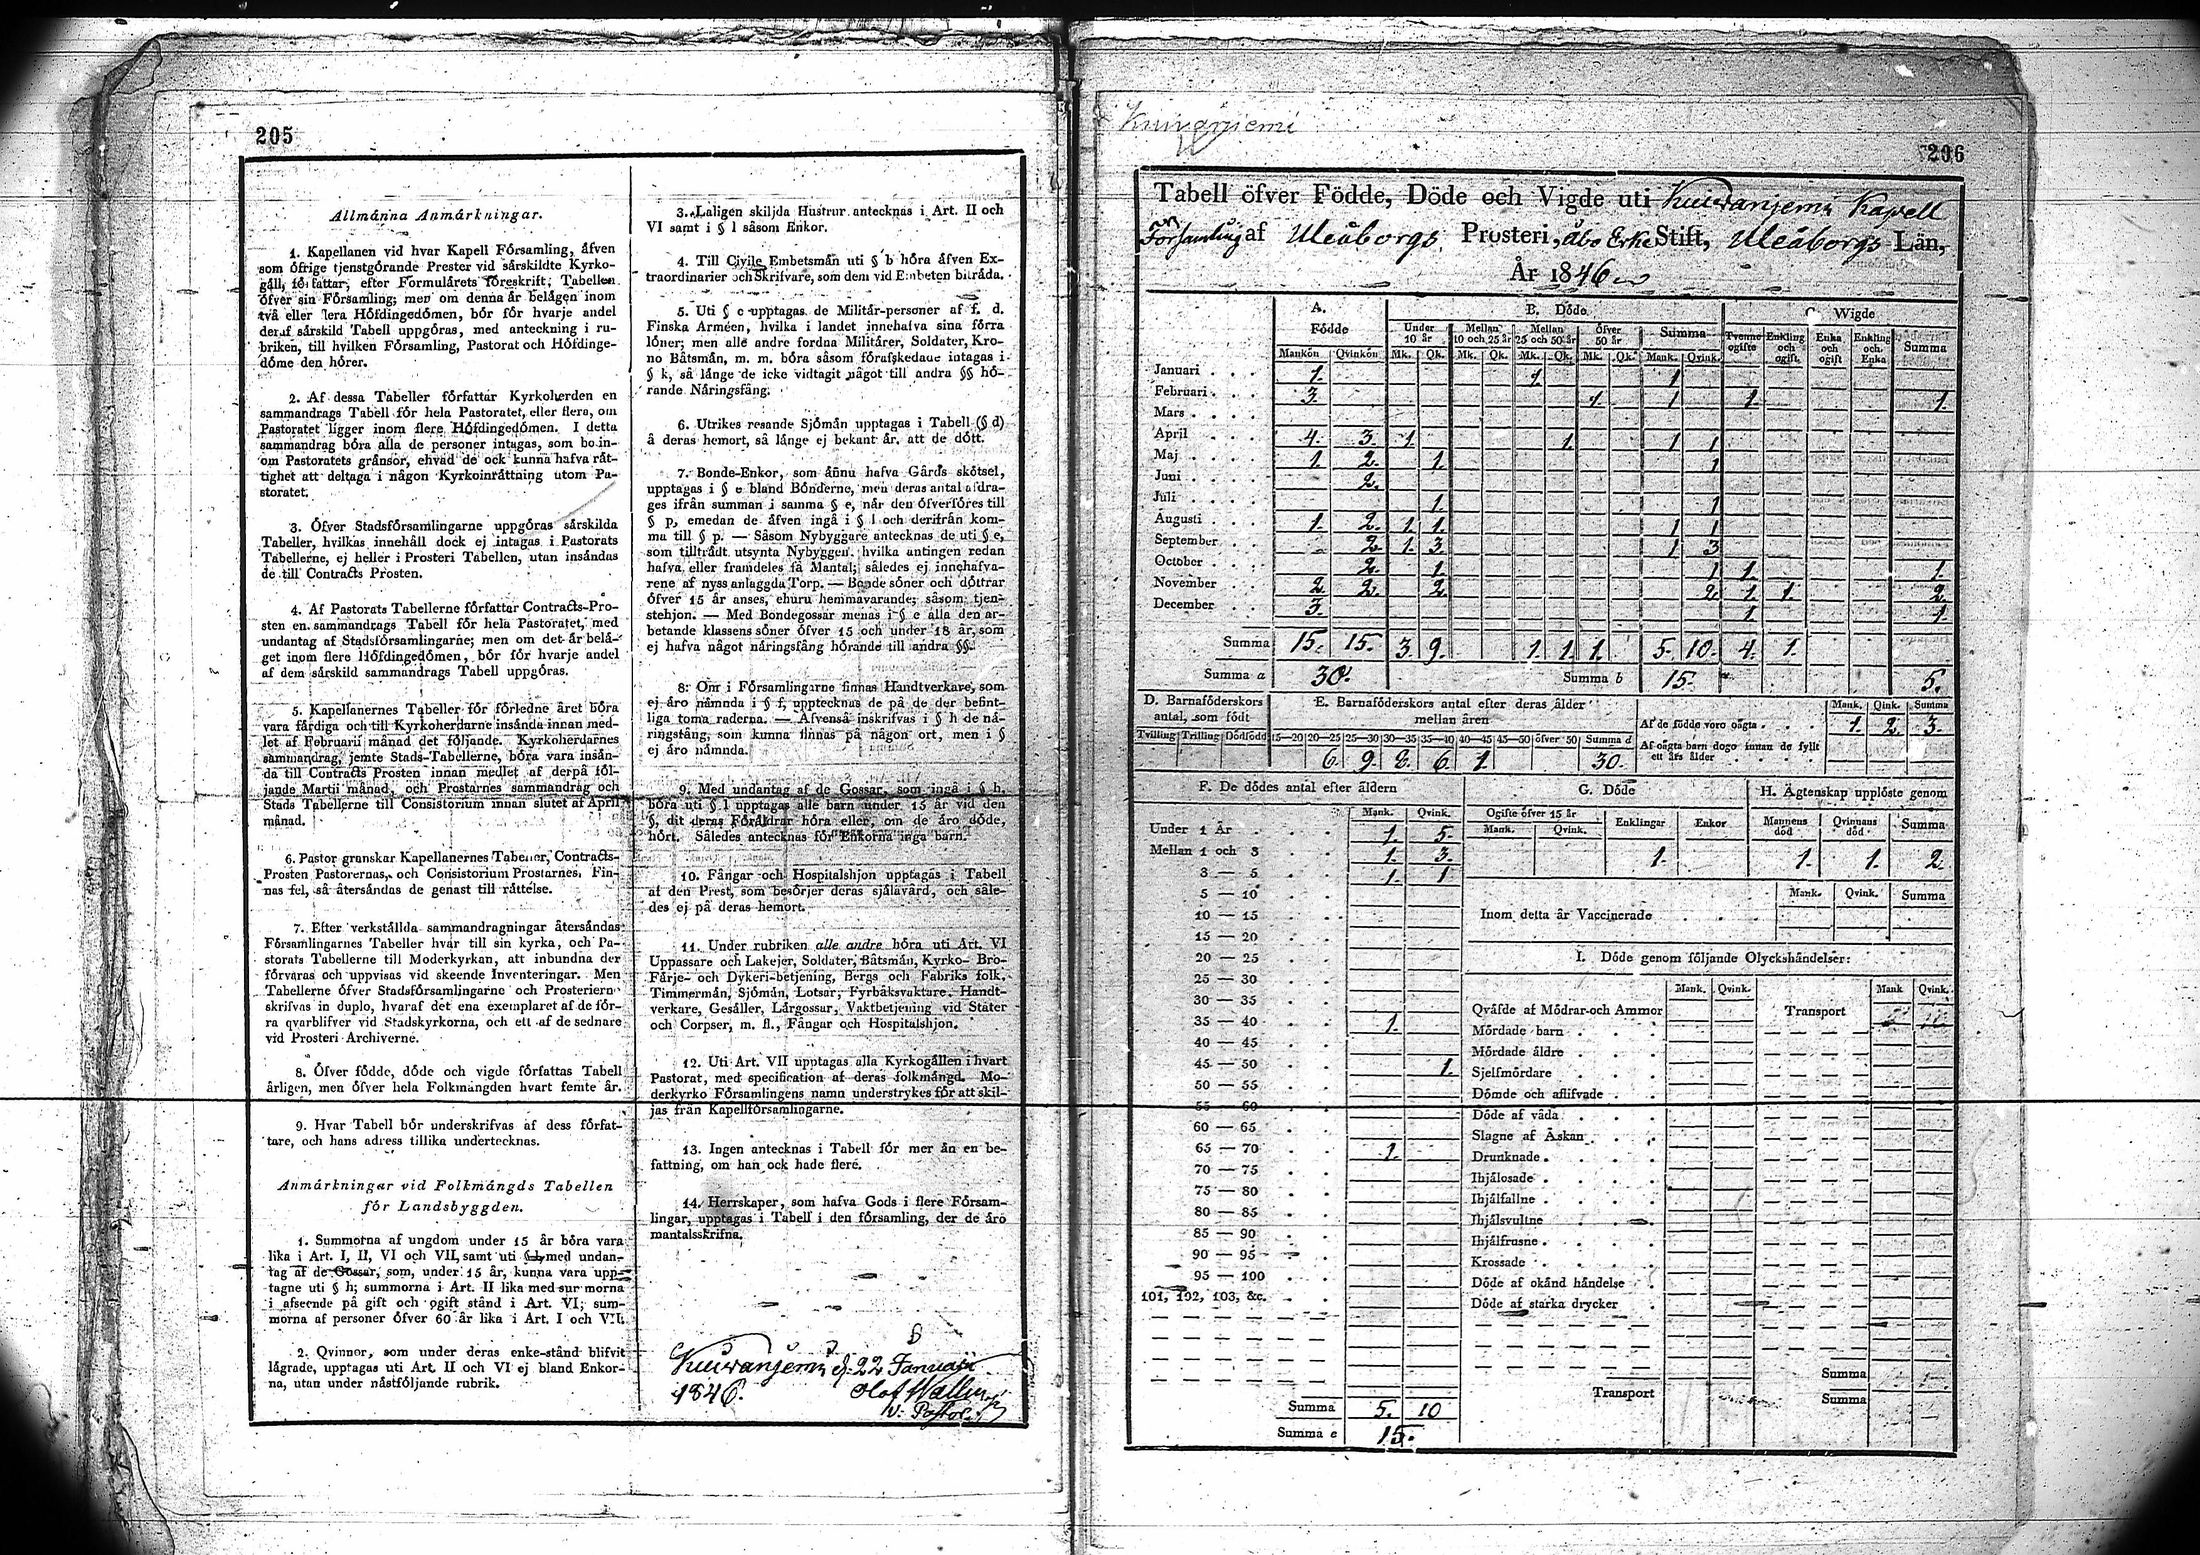 205
Allmänna Anmärkningar.
1. Kapellanen vid hvar Kapell Församling, äfven
som öfrige tjenstgörande Prester vid särskildte Kyrko-
gäll, författar, efter Formulärets föreskrift, Tabellen
öfver sin Församling; men om denna är belägen inom
två eller flera Höfdingedömen, bör för hvarje andel
deraf särskild Tabell uppgöras, med anteckning i ru-
briken, till hvilken Församling, Pastorat och Höfdinge-
döme den hörer.
2. Af dessa Tabeller författar Kyrkoherden en
sammandrags Tabell för hela Pastoratet, eller flera, om
Pastoratet ligger inom flere Höfdingedömen. I detta
sammandrag böra alla de personer intagas, som bo in-
om Pastoratets gränsor, ehvad de ock kunna hafva rät-
tighet att deltaga i någon Kyrkoinrättning utom Pa-
storatet.
3. Öfver Stadsförsamlingarne uppgöras särskilda
Tabeller, hvilkas innehåll dock ej intages i Pastorats
Tabellerne, ej heller i Prosteri Tabellen, utan insändas
de till Contracts Prosten.
4. Af Pastorats Tabellerne författar Contracts-Pro-
sten en sammandrags Tabell för hela Pastoratet, med
undantag af Stadsförsamlingarne; men om det är belä-
get inom flere Höfdingedömen, bör för hvarje andel
af dem särskild sammandrags Tabell uppgöras.
5. Kapellanernes Tabeller för förledne året böra
vara färdiga och till Kyrkoherdarne insända innan med-
let af Februarii månad det följande. Kyrkoherdarnes
sammandrag, jemte Stads-Tabellerne, böra vara insän-
da till Contracts Prosten innan medlet af derpå föl-
jande Martii månad, och Prostarnes sammandrag och
Stads Tabellerne till Consistorium innan slutet af April
månad.
6. Pastor granskar Kapellanernes Tabeller, Contracts-
Prosten Pastorernas, och Consistorium Prostarnes. Fin-
nas fel, så återsändas de genast till rättelse.
7. Efter verkställda sammandragningar återsändas
Församlingarnes Tabeller hvar till sin kyrka, och Pa-
storats Tabellerne till Moderkyrkan, att inbundna der
förvaras och uppvisas vid skeende Inventeringar. Men
Tabellerne öfver Stadsförsamlingarne och Prosterierne
skrifvas in duplo, hvaraf det ena exemplaret af de för-
ra qvarblifver vid Stadskyrkorna, och ett af de sednare
vid Prosteri Archiverne.
8. Öfver födde, döde och vigde författas Tabell
årligen, men öfver hela Folkmängden hvart femte år.
9. Hvar Tabell bör underskrifvas af dess förfat-
tare, och hans adress tillika undertecknas.
Anmärkningar vid Folkmängds Tabellen
för Landsbyggden.
1. Summorna af ungdom under 15 år böra vara
lika i Art. I, II, VI och VII, samt uti med undan-
tag af de Gossar, som, under 15 år, kunna vara upp-
tagne uti § h; summorna i Art. II lika med summorna
i afseende på gift och ogift stånd i Art. VI; sum-
morna af personer öfver 60 år lika i Art. I och VII.
2. Qvinnor, som under deras enke-stånd blifvit
lägrade, upptagas uti Art. II och VI ej bland Enkor-
na, utan under nästföljande rubrik.
3. Laligen skiljda Hustrur antecknas i Art. II och
VI samt i § l såsom Enkor.
4. Till Civile Embetsmän uti § b höra äfven Ex-
traordinarier och Skrifvare, som dem vid Embeten biträda.
5. Uti § c upptagas de Militär-personer af f. d.
Finska Arméen, hvilka i landet innehafva sina förra
löner; men alle andre fordna Militärer, Soldater, Kro-
no Båtsmän, m. m. böra såsom förafskedade intagas i
§ k, så länge de icke vidtagit något till andra §§ hö-
rande Näringsfång.
6. Utrikes resande Sjömän upptagas i Tabell (§ d)
å deras hemort, så länge ej bekant är, att de dött.
7. Bonde-Enkor, som ännu hafva Gårds skötsel,
upptagas i § e bland Bönderne, men deras antal afdra-
ges ifrån summan i samma § e, når den öfverföres till
§ p, emedan de äfven ingå i § l och derifrån kom-
ma till § p. — Såsom Nybyggare antecknas de uti § e,
som tillträdt utsynta Nybyggen, hvilka antingen redan
hafva eller framdeles få Mantal; således ej innehafva-
rene af nyss anlaggda Torp. — Bonde söner och döttrar
öfver 15 år anses, ehuru hemmavarande; såsom tjen-
stehjon. — Med Bondegossar menas i § e alla den ar-
betande klassens söner öfver 15 och under 18 år, som
ej hafva något näringsfång hörande till andra §§.
8. Om i Församlingarne finnas Handtverkare, som
ej äro nämnda i § f, upptecknas de på de der befint-
liga toma raderna. — Äfvenså inskrifvas i § h de nä-
ringsfång, som kunna finnas på någon ort, men i §
ej äro nämnda.
9. Med undantag af de Gossar, som ingå i § h,
böra uti § l upptagas alle barn under 15 år vid den
§, dit deras Föräldrar höra eller, om de äro döde,
hört. Således antecknas för Enkorna inga barn.
10. Fångar och Hospitalshjon upptagas i Tabell
af den Prest, som besörjer deras själavård, och såle-
des ej på deras hemort.
11. Under rubriken alle andre höra uti Art. VI
Uppassare och Lakejer, Soldater, Båtsmän, Kyrko- Bro-
Färje- och Dykeri-betjening, Bergs och Fabriks folk,
Timmermän, Sjömän, Lotsar, Fyrbåksvaktare, Handt-
verkare, Gesäller, Lärgossar, Vaktbetjening vid Stater
och Corpser, m. fl., Fångar och Hospitalshjon.
12. Uti Art. VII upptagas alla Kyrkogällen i hvart
Pastorat, med specification af deras folkmängd. Mo-
derkyrko Församlingens namn understrykes för att skil-
jas från Kapellförsamlingarne.
13. Ingen antecknas i Tabell för mer än en be-
fattning, om han ock hade flere.
14. Herrskaper, som hafva Gods i flere Försam-
lingar, upptagas i Tabell i den församling, der de äro
mantalsskrifna.
Kuiwaniemi d. 22 Januari
1846. Olof Wallin
v. Pastor
Kuivaniemi
206
Tabell öfver Födde, Döde och Vigde uti Kuiwaniemi Kapell
Församling af Uleåborgs Prosteri, Åbo Erke Stift, Uleåborgs Län,
År 1846
A. B. Döde C. Wigde
Födde Under 10 år Mellan 10 och 25 år Mellan 25 och 50 år Öfver 50 år Summa Tvenne ogifte Enkling och ogift Enka och ogift Enkling och Enka Summa
Mankön Qvinkön Mk. Qk. Mk. Qk. Mk. Qk. Mk. Qk. Mank. Qvink.
Januari 1. 1. 1
Februari 3. 1. 1 1. 1.
Mars
April 4. 3. 1. 1. 1 1
Maj 1. 2. 1. 1
Juni 2.
Juli 1. 1
Augusti 1. 2. 1. 1. 1 1
September 2. 1. 3. 1 3
October 2. 1. 1 1. 1.
November 2. 2. 2. 2 1. 1. 2.
December 3. 1. 1.
Summa 15. 15. 3. 9. 1. 1. 1. 5. 10. 4. 1.
Summa a 30. Summa b 15. 5.
D. Barnaföderskors antal, som födt
Tvilling Trilling Dödfödd
E. Barnaföderskors antal efter deras ålder mellan åren
15—20 20—25 25—30 30—35 35—40 40—45 45—50 öfver 50 Summa d
6. 9. 8. 6. 1. 30.
Mank. Qink. Summa
Af de födde voro oägta 1. 2. 3.
Af oägta barn dogo innan de fyllt
ett års ålder
F. De dödes antal efter åldern
Mank. Qvink.
Under 1 År 1. 5.
Mellan 1 och 3 1. 3.
3 — 5 1. 1
5 — 10
10 — 15
15 — 20
20 — 25
25 — 30
30 — 35
35 — 40 1.
40 — 45
45 — 50 1.
50 — 55
55 — 60
60 — 65
65 — 70 1.
70 — 75
75 — 80
80 — 85
85 — 90
90 — 95
95 — 100
101, 102, 103, &c.
Summa 5. 10
Summa e 15.
G. Döde
Ogifte öfver 15 år Enklingar Enkor
Mank. Qvink.
1.
H. Ägtenskap upplöste genom
Mannens död Qvinnans död Summa
1. 1. 2.
Mank. Qvink. Summa
Inom detta år Vaccinerade
I. Döde genom följande Olyckshändelser:
Mank. Qvink. Mank Qvink.
Qväfde af Mödrar och Ammor Transport
Mördade barn
Mördade äldre
Sjelfmördare
Dömde och aflifvade
Döde af våda
Slagne af Åskan
Drunknade
Ihjälosade
Ihjälfallne
Ihjälsvultne
Ihjälfrusne
Krossade
Döde af okänd händelse
Döde af starka drycker
Summa
Transport Summa